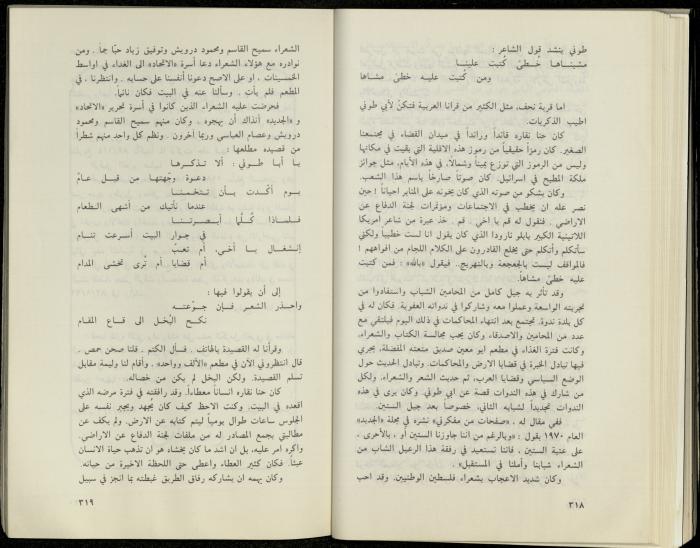 طوني ينشد قول الشاعر :
مشيناها خُطىً كُتبت علينا
ومن كُتبت عليه خطىً مشاها
اما قرية نحف، مثل الكثير من قرانا العربية فتكنّ لأبي طوني
اطيب الذكريات.
كان حنا نقاره قائداً ورائداً في ميدان القضاء في مجتمعنا
الصغير. كان رمزاً حقيقياً من رموز هذه الاقلية التي بقيت في مكانها
وليس من الرموز التي توزع يميناً وشمالاً، في هذه الأيام، مثل جوائز
ملكة المطبخ في اسرائيل. كان صوتاً صارخاً باسم هذا الشعب.
وكان يشكو من صوته الذي كان يخونه على المنابر احياناً ! حين
نصر عله ان يخطب في الاجتماعات ومؤتمرات لجنة الدفاع عن
الاراضي . فنقول له قم يا اخي . قم . خذ عبرة من شاعر امريكا
اللاتينية الكبير بابلو نارودا الذي كان يقول انا لست خطيباً ولكني
سأتكلم وأتكلم حتى يخلع القادرون على الكلام اللجام من افواههم !
فالمواقف ليست بالجعجعة وبالتهريج. فيقول «بالله» : فمن كتبت
عليه خطىً مشاها.
وقد تأثر به جيل كامل من المحامين الشباب واستفادوا من
تجربته الواسعة وعملوا معه وشاركوا في ندواته العفوية. فكان له في
كل بلدة ندوة. تجتمع بعد انتهاء المحاكمات في ذلك اليوم فيلتقي مع
عدد من المحامين والاصدقاء وكان يحب مجالسة الكتاب والشعراء.
وكانت فترة الغذاء في مطعم ابو معين صديق متعته المفضلة. يجري
فيها تبادل الخبرة في قضايا الارض والمحاكمات. وتبادل الحديث حول
الوضع السياسي وقضايا العرب، ثم حديث الشعر والشعراء. ولكل
من شارك في هذه الندوات قصة عن ابي طوني. وكان يرى في هذه
الندوات تجديداً لشبابه الثاني، خصوصاً بعد جيل الستين.
ففي مقال له ، «صفحات من مفكرتي» نشره في مجلة «الجديد»
العام ١٩٧٠ يقول : «وبالرغم من اننا جاوزنا الستين أو ، بالأحرى ،
على عتبة الستين ، فاننا نستعيد في رفقة هذا الرعيل الشاب من
الشعراء شبابنا وأملنا في المستقبل» .
وكان شديد الاعجاب بشعراء فلسطين الوطنيين. وقد احب
٣١٨
الشعراء سميح القاسم ومحمود درويش وتوفيق زياد حبّاً جماً . ومن
نوادره مع هؤلاء الشعراء دعا أسرة «الاتحاد» الى الغداء في اواسط
الخمسينات ، او على الاصح دعونا أنفسنا على حسابه . وانتظرنا ، في
المطعم فلم يأتِ . وسألنا عنه في البيت فكان نائماً.
فحرضت عليه الشعراء الذين كانوا في أسرة تحرير «الاتحاد»
و «الجديد» آنذاك أن يهجوه . وكان منهم سميح القاسم ومحمود
درويش وعصام العباسي وربما آخرون . ونظم كل واحد منهم شطراً
من قصيده مطلعها :
يا أبا طوني : ألا تذكرها
دعوة وجّهتها من قبل عامْ
يوم أكّدت بأن تتخمنا
عندما نأتيك من أشهى الطعام
فلماذا كُلّما أبصرتنا
في جوار البيت أسرعت تنام
إنشغال يا أخي، أم تعبٌ
أم قضايا أم تُرى تخشى المدام
إلى أن يقولوا فيها :
واحذر الشعر فإن جوّعته
نكح البُخل الى قاع المقام
وقرأنا له القصيدة بالهاتف . فسأل الكتم . قلنا صحن حمص .
قال انتظروني الآن في مطعم «الألف وواحد» . وأقام لنا وليمة مقابل
تسلم القصيدة. ولكن البخل لم يكن من خصاله.
كان حنا نقاره انساناً معطاءاً. وقد رافقته في فترة مرضه الذي
اقعده في البيت. وكنت الاحظ كيف كان يجهد ويجبر نفسه على
الجلوس ساعات طوال يومياً ليتم كتابه عن الارض. ولم يكف عن
مطالبتي بجمع المصادر له من ملفات لجنة الدفاع عن الاراضي.
واكره امر عليه، بل ان اشد ما كان يخشاه هو ان تذهب حياة الانسان
عبثاً. فكان كثير العطاء واعطى حتى اللحظة الاخيرة من حياته.
وكان يهمه ان يشاركه رفاق الطريق غبطته بما انجز في سبيل
٣١٩